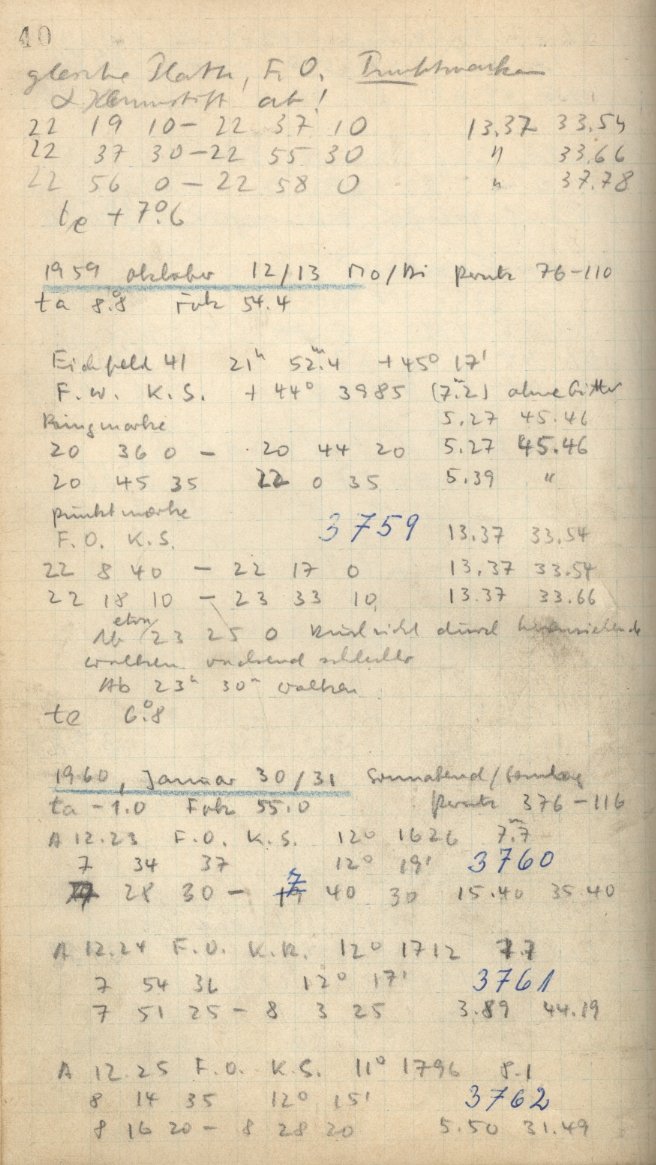 40
gleiche Platte, F. O. Punktmarken
ab!
22 19 10 - 22 37 10 13.37 33.54
22 37 30 - 22 55 30 " 33.66
22 56 0 - 22 58 0 " 37.78
te +7°.6
1959 Oktober 12/13 Mo/Di Perutz 76-110
ta 8°.8 Fok 54.4
Eichfeld 41 21h 52m.4 +45° 17'
F. W. K. S. +44° 3985 (7m.2) ohne Gitter
Ringmarke 5.27 45.46
20 36 0 - 20 44 20 5.27 45.46
20 45 35 22 0 35 5.39 "
Punktmarke 3759
F. O. K. S. 13.37 33.54
22 8 40 - 22 17 0 13.37 33.54
22 18 10 - 23 33 10 13.37 33.66
Ab etwa 23 25 0 durch
Wolken schlechter
Ab 23h 30m Wolken
te 6°.8
1960, Januar 30/31 Sonnabend/Sonntag
ta -1.0 Fok 55.0 Perutz 376-116
A 12.23 F. O. K. S. 12° 1626 7m.7
7 34 37 12° 19' 3760
28 30 - 7 40 30 15.40 35.40
A 12.24 F. O. K. R. 12° 1712 7.7
7 54 36 12° 17' 3761
7 51 25 - 8 3 25 3.89 44.19
A 12.25 F. O. K. S. 11° 1796 8.1
8 14 35 12° 15' 3762
8 16 20 - 8 28 20 5.50 31.49